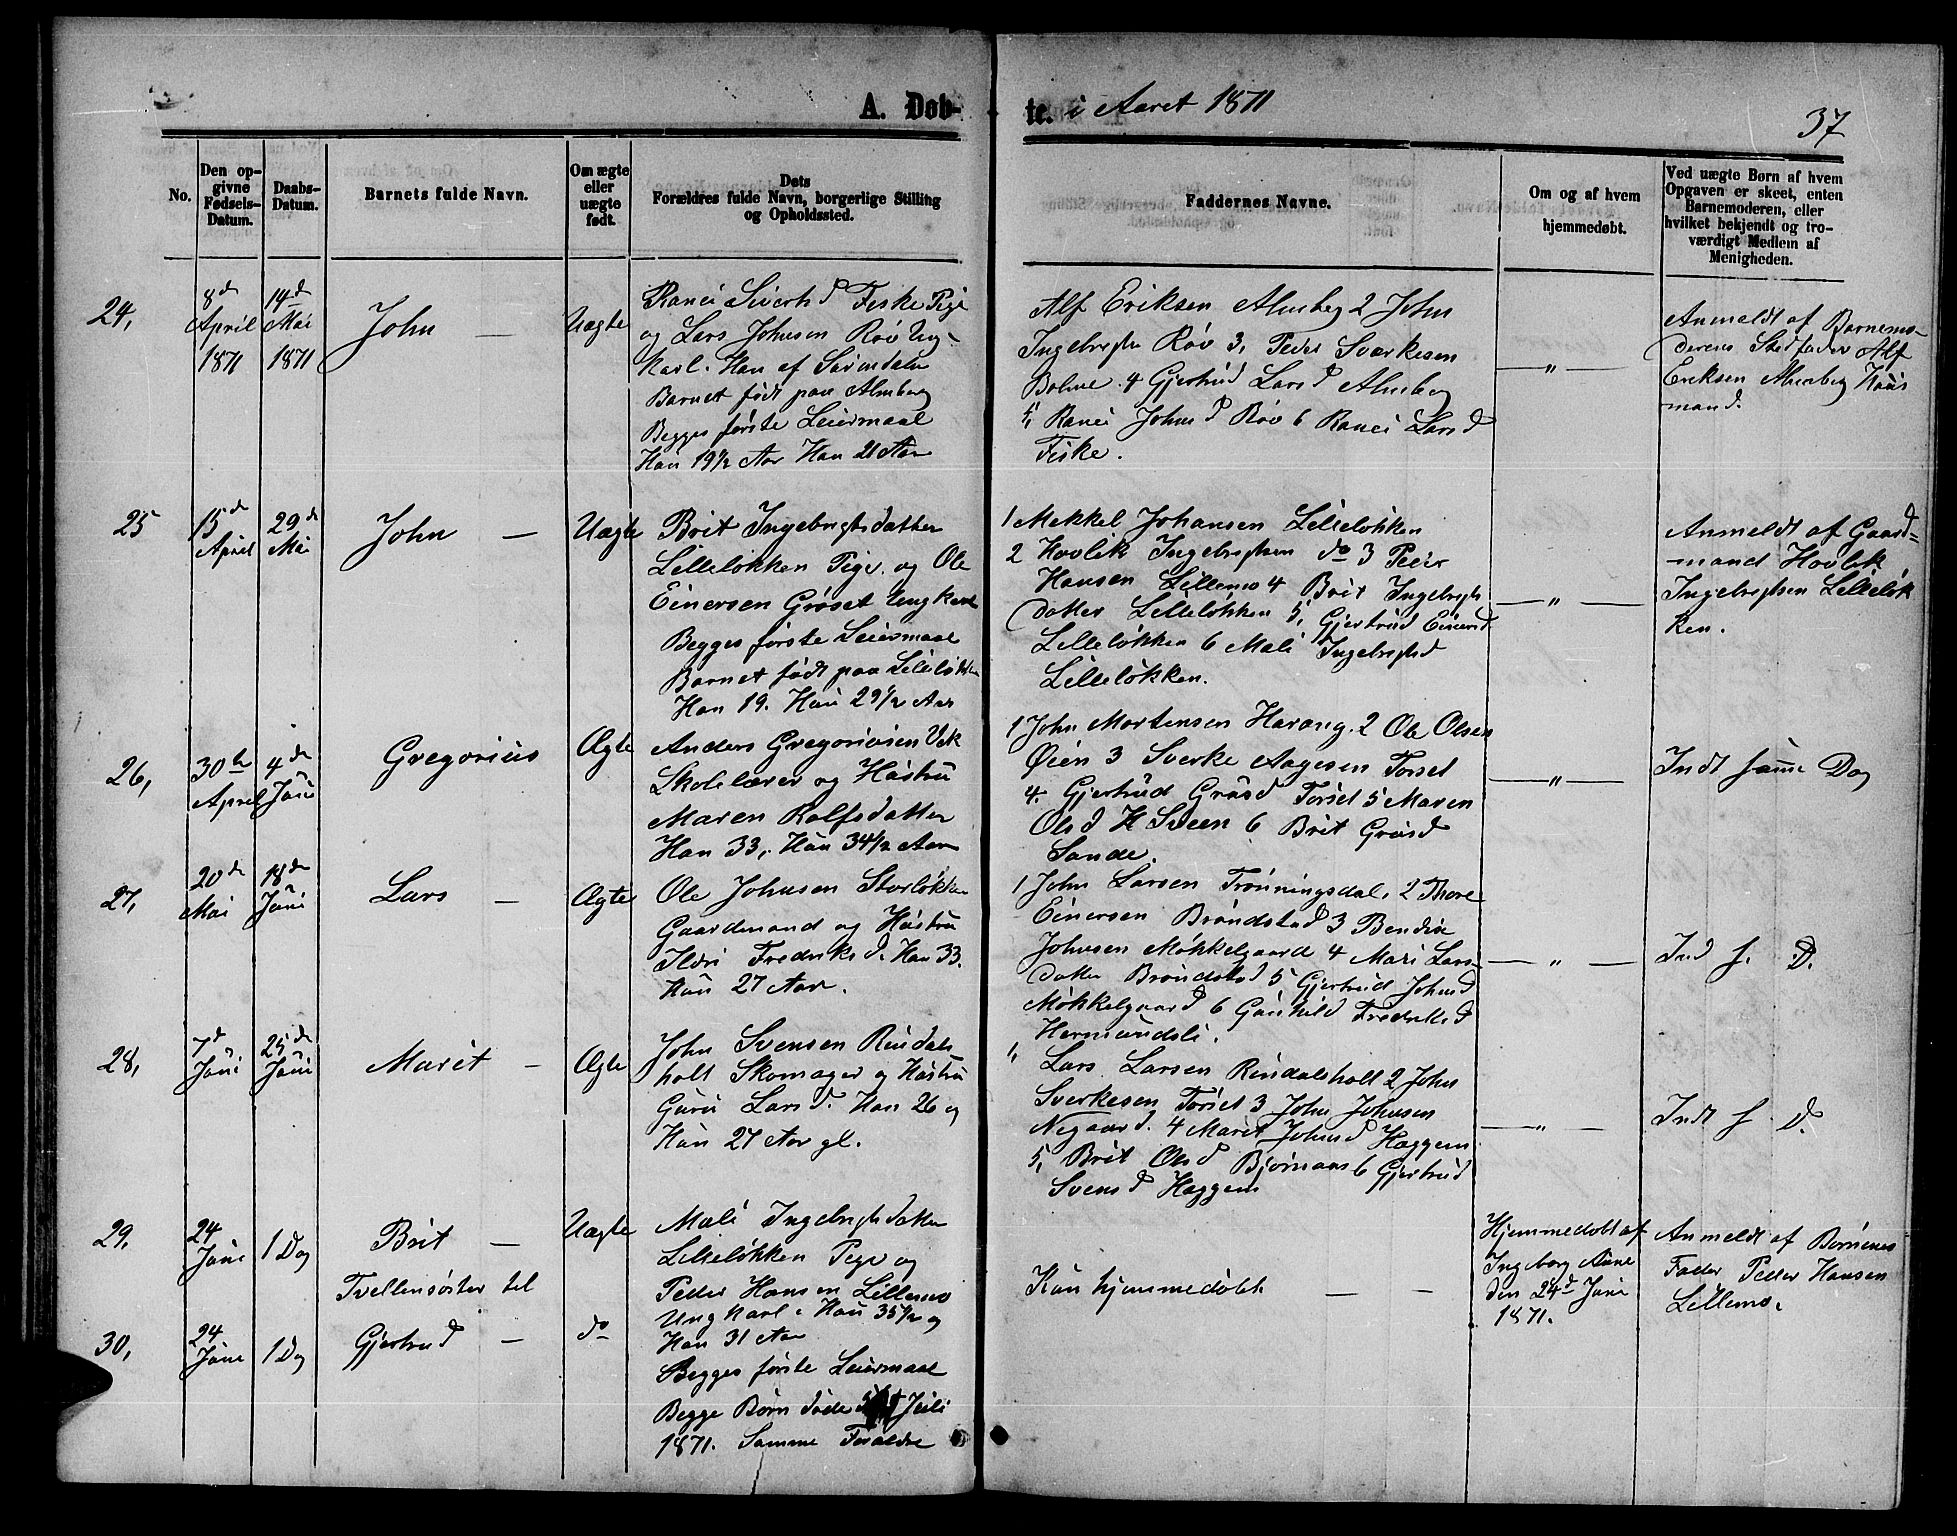 A. Døb-
te. i Aaret 1871
37
No.
Den op-
givne
Fødsels-
Datum.
Daabs-
Datum.
Barnets fulde Navn.
Om ægte
eller
uægte
født.
Døts
Forældres fulde Navn, borgerlige Stilling
og Opholdssted.
Faddernes Navne.
Om og af hvem
hjemmedøbt.
Ved uægte Børn af hvem
Opgaven er skeet, enten
Barnemoderen, eller
hvilket bekjendt og tro-
værdigt Medlem af
Menigheden.
24,
8de
April
1871
14de
Mai
1871
John —
Uægte
Ranei Sivertsd Fiske Pige
og Lars Johnsen Røv Ung-
karl. Han af Surendalen
Barnet født paa Almberg
Begges første Leiermaal
Hun 19½ Aar Han 21 Aar
Alf Eriksen Almberg 2 John
Ingebrigtsen Røv 3, Peder Sverkesen
Bolme. 4 Gjertrud Larsd Almberg
5, Ranei Johnsd Røv 6 Ranei Larsd
Fiske.
— „ —
Anmeldt af Barnemo-
derens Stedfader Alf
Eriksen Almberg Huus
mand.
25
15de
April
29de
Mai
John —
Uægte
Brit Ingebrigtsdatter
Lilleløkken Pige. og Ole
Einersen Grøset Ungkarl
Begges første Leiermaal
Barnet født paa Lilleløkken
Han 19. Hun 29½ Aar
1 Mekkel Johansen Lilleløkken
2 Hovlik Ingebrigtsen do 3 Peder
Hansen Lillemo 4 Brit Ingebrigts
datter Lilleløkken 5, Gjertrud Einersd
Lilleløkken 6 Mali Ingebrigtsd
Lilleløkken.
— „ —
Anmeldt af Gaard-
mand Hovlik
Ingebrigtsen Lilleløk
ken.
26,
30te
April
4de
Juni
Gregorius
Ægte
Anders Gregoriusen Vek
Skolelærer og Hustru
Maren Rolfsdatter
Han 33, Hun 34½ Aar
1 John Mortensen Harang. 2 Ole Olsen
Øien 3 Sverke Aagesen Torset
4. Gjertrud Grusd Torset 5 Maren
Olsd H Sveen 6 Brit Grusd
Sande.
— „ —
Indt samme Dag
27,
20de
Mai
18de
Juni
Lars —
Ægte
Ole Johnsen Storløkken
Gaardmand og Hustru
Ildri Fredriksd. Han 33.
Hun 27 Aar.
1 John Larsen Trønningsdal, 2 Thore
Einersen Brøndstad 3 Bendix
Johnsen Møkkelgaard 4 Mari Lars-
datter Brøndstad 5 Gjertrud Johnsd
Møkkelgaard 6 Gunhild Fredriksd
Hermundsli.
— „ —
Ind s. D.
28,
7de
Juni
25de
Juni
Marit —
Ægte
John Svensen Rindals
holt Skomager og Hustru
Guru Larsd. Han 26 og
Hun 27 Aar gl.
1, Lars Larsen Rindalsholt 2 John
Sverkesen Torset 3 John Johnsen
Negaard. 4 Marit Johnsd Haggem
5, Brit Olsd Bjørnaas 6 Gjertrud
Svensd Haggem
— „ —
Indt s D.
29,
24
Juni
1 Dag
Brit —
Tvellensøster til
Uægte
Mali Ingebrigtsdatter
Lilleløkken Pige og
Peder Hansen Lillemo
Ungkarl. Hun 35½ og
Han 31 Aar
Begges første Leiermaal
Begge Børn døde Juli
1871. Samme Forældre
Kun hjemmedøbt — —
Hjemmedøbt af
Ingeborg Aune
den 24de Juni
1871.
Anmeldt af Børnenes
Fader Peder Hansen
Lillemo.
30,
24
Juni
1 Dag
Gjertrud —
do